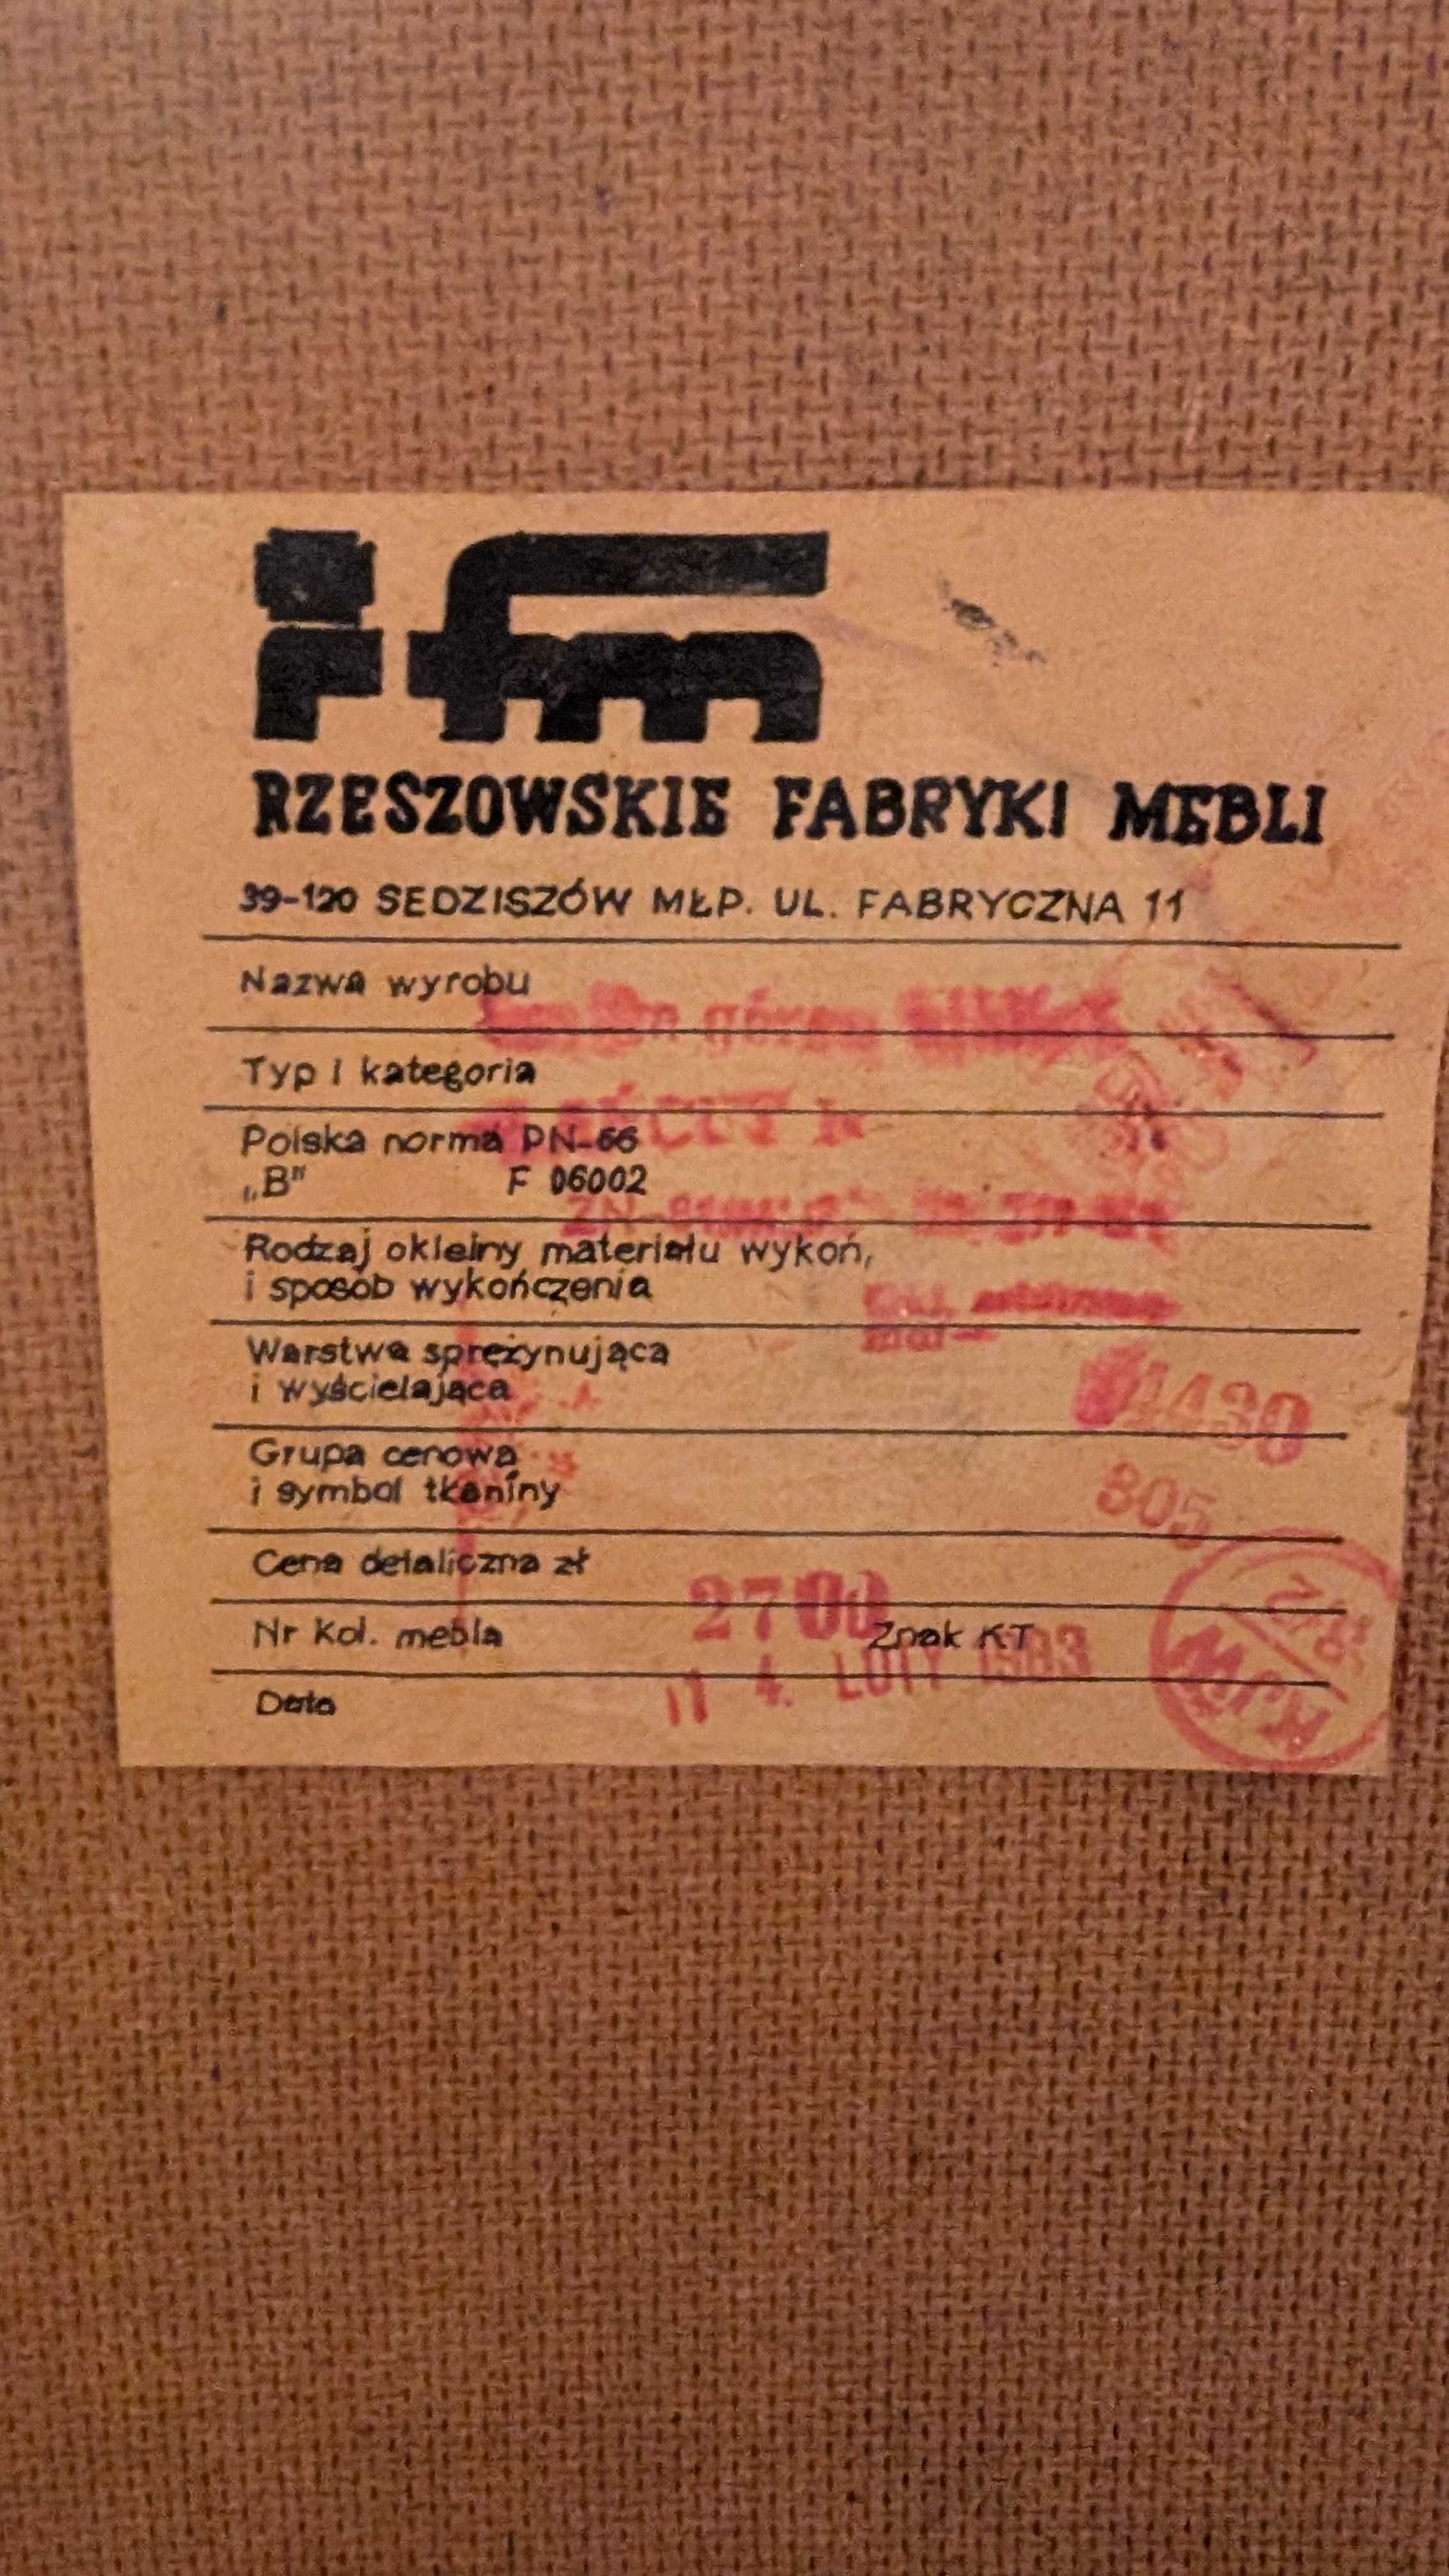 rfm
RZESZOWSKIE FABRYKI MEBLI
39-120 SEDZISZÓW MŁP. UL. FABRYCZNA 11
Nazwa wyrobu
górna
Typ i kategoria
Polska norma PN-66
„B" F 06002
Rodzaj okleiny materiału wykoń,
i sposób wykończenia
Warstwa sprężynująca
i wyścielająca
1430
Grupa cenowa
i symbol tkaniny
805
Cena detaliczna zł
2700
Nr Kol. mebla Znak KT
Data 14. LUTY 1983